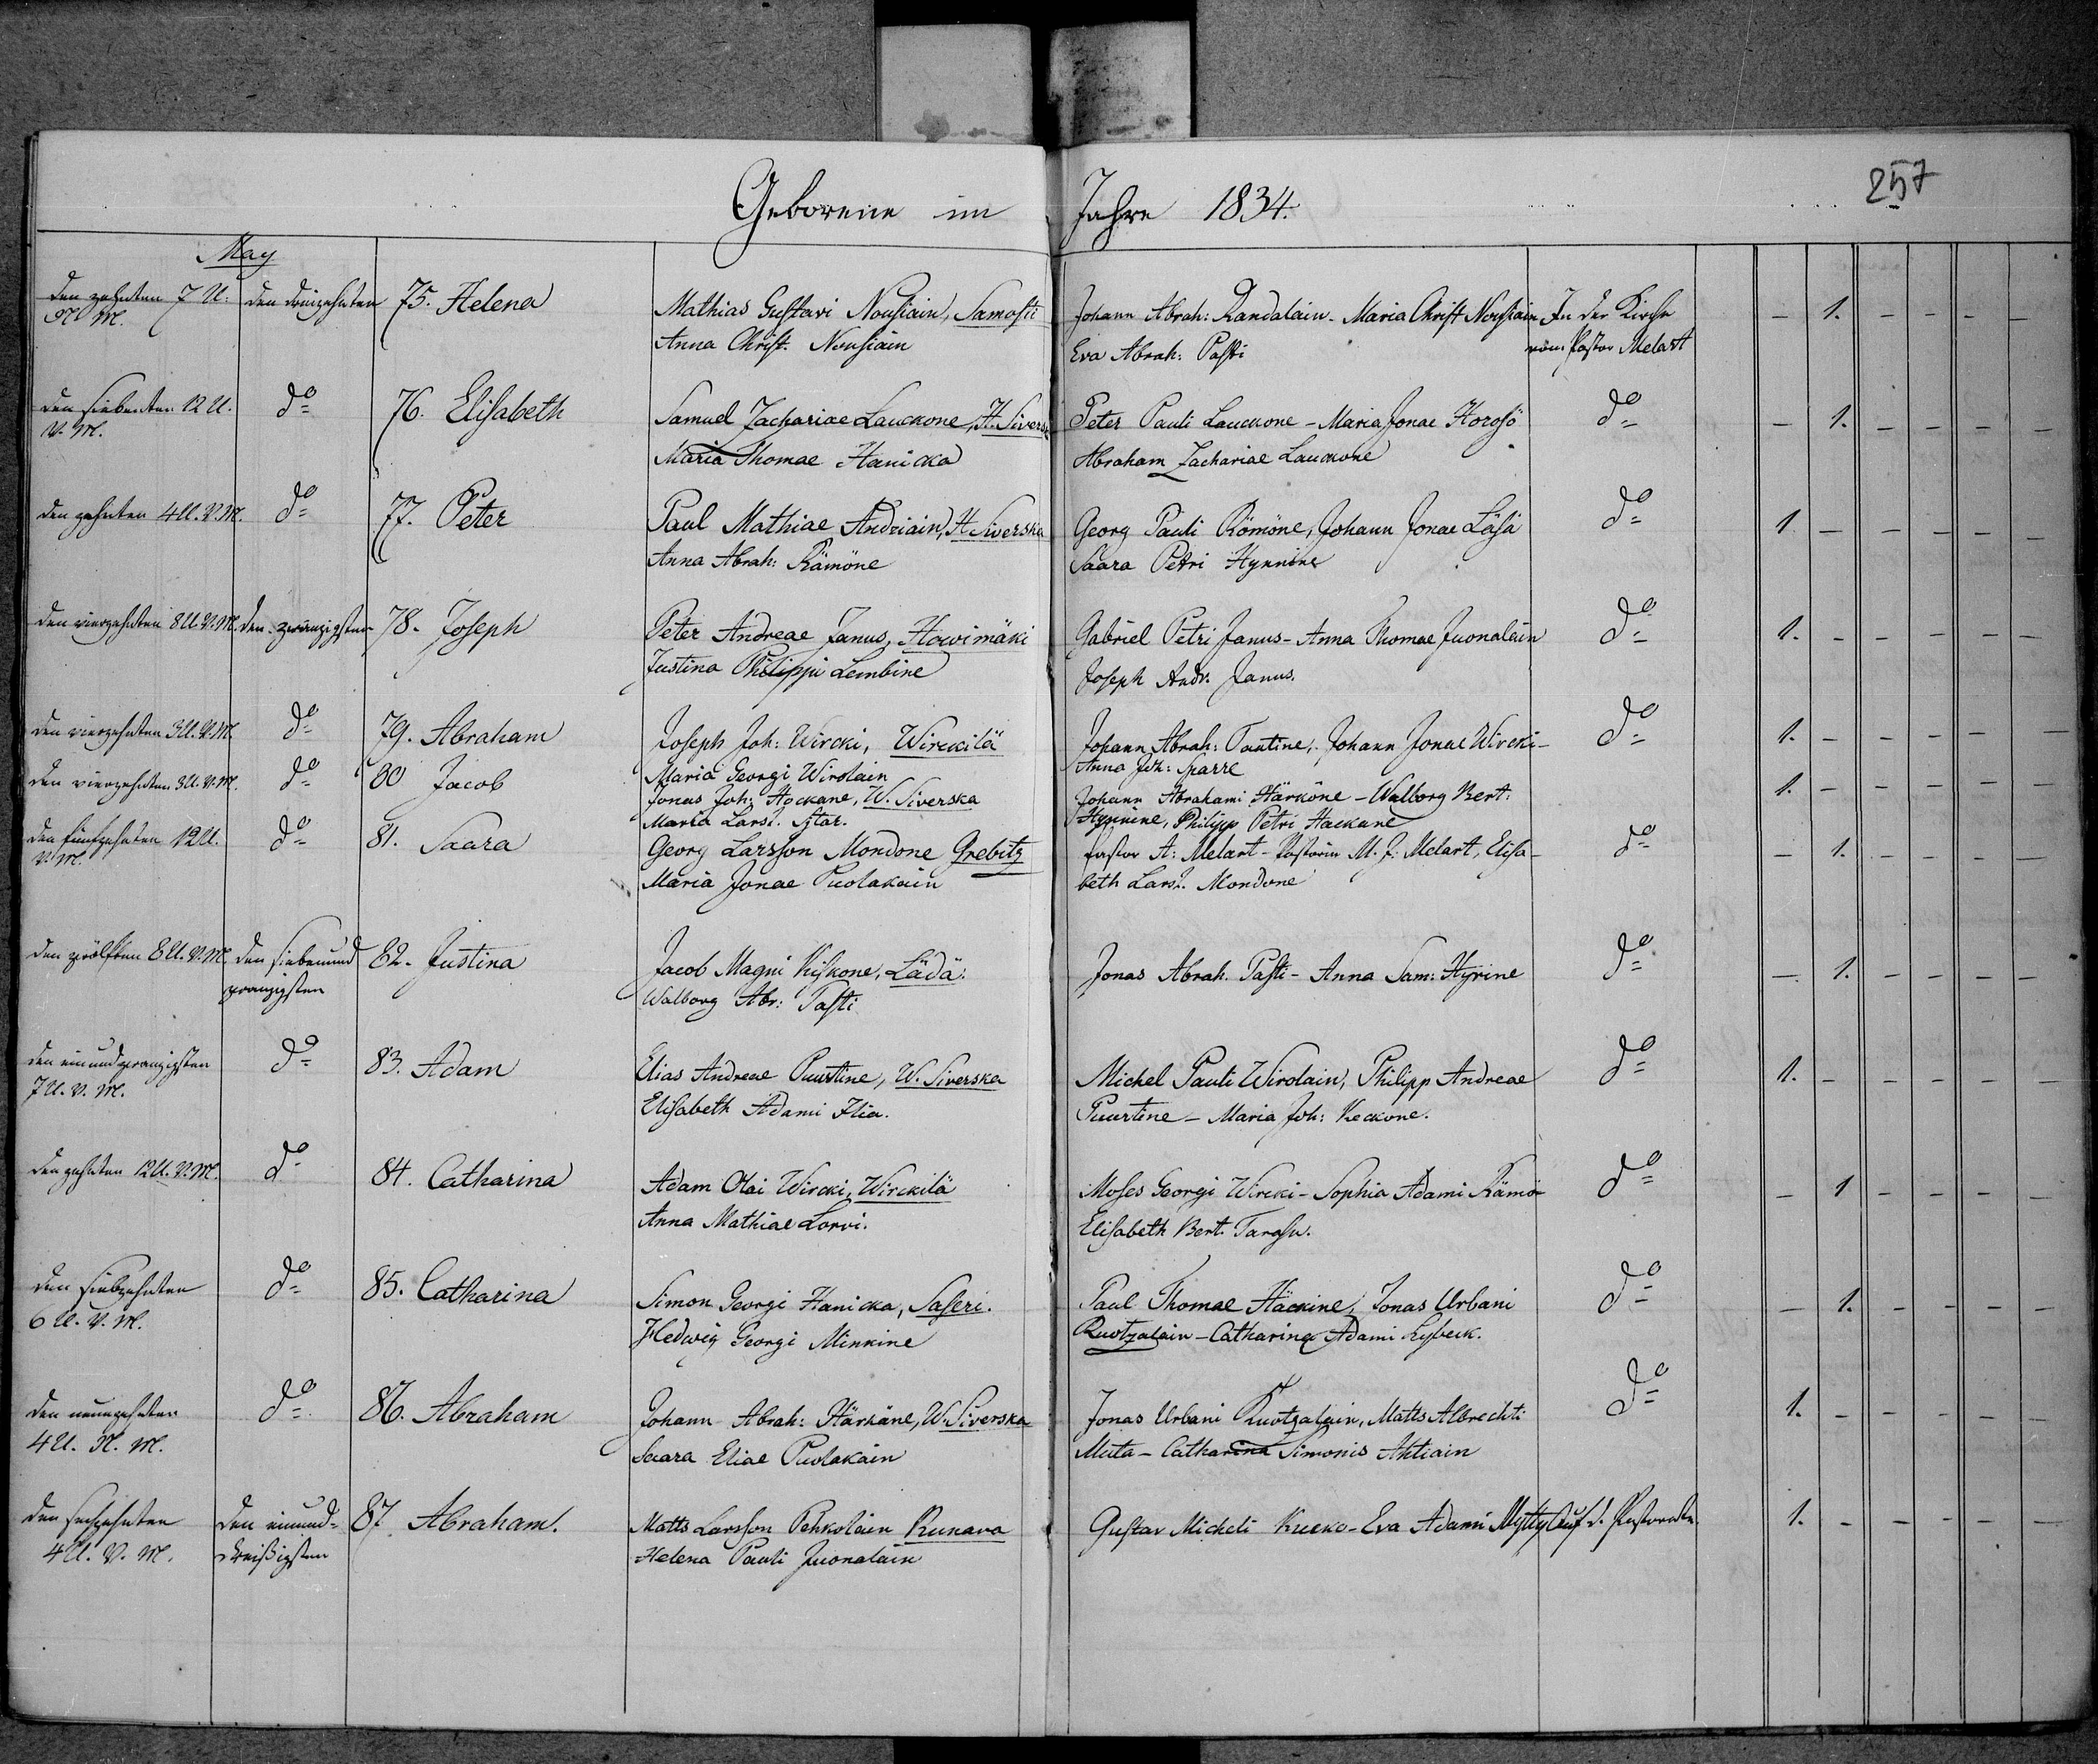 257
Geborene im Jahre 1834.
May
den zehnten 7 U. den dreizehnten 75. Helena Mathias Gustavi Nousiain, Samosti Johann Abrah: Randalain - Maria Christ Nousiain In der Kirche
N. M. Anna Christ. Nousiain Eva Abrah: Pasti vom Pastor Melart
— 1. — — — —
den siebenten 12 U. do 76. Elisabeth Samuel Zachariae Lauckone, H. Siversk Peter Pauli Lauckone - Maria Jonae Horosö do
V. M. Maria Thomae Hanicka Abraham Zachariae Lauckone
— 1. — — — —
den zehnten 4 U. V. M. do 77. Peter Paul Mathiae Andriain, H Siverska Georg Pauli Römöne, Johann Jonae Läsä do
Anna Abrah: Rämöne Saara Petri Hynnine
1 — — — — —
den vierzehnten 8 U. V. M. den zwanzigsten 78. Joseph Peter Andreae Janus, Howimäki Gabriel Petri Janus - Anna Thomae Juonalain do
Justina Philippi Lembine Joseph Andr. Janus.
1. — — — — —
den vierzehnten 3 U. V. M. do 79. Abraham Joseph Joh: Wircki, Wirckilä Johann Abrah: Tautine, Johann Jonae Wircki - do
Maria Georgi Wirolain Anna Joh: Sparre
1. — — — — —
den vierzehnten 3 U. V. M. do 80 Jacob Jonas Joh: Hackane, W. Siverska Johann Abrahami Härköne - Walborg Bert:
Maria Lars. Star. Hynnine, Philipp Petri Hackane
1. — — — — —
den fünfzehnten 12 U. do 81. Saara Georg Larsson Mondone Grebitz Pastor A: Melart - Pastorin M. J: Melart, Elisa- do
V. M. Maria Jonae Puolakain beth Lars. Mondone
— 1. — — — —
den zwölften 8 U. V. M. den siebenund 82. Justina Jacob Magni Kiskone, Lädä. Jonas Abrah. Pasti - Anna Sam: Hyrine do
zwanzigsten Walborg Abr: Pasti
— 1. — — — —
den einundzwanzigsten do 83. Adam Elias Andreae Puurtine, W. Siverska Michel Pauli Wirolain, Philipp Andreae do
7 U. V. M. Elisabeth Adami Ilia. Puurtine - Maria Joh: Keckone.
1. — — — — —
den zehnten 12 U. V. M. do 84. Catharina Adam Olai Wircki, Wirckilä Moses Georgi Wircki - Sophia Adami Rämö do
Anna Mathiae Lorvi. Elisabeth Bert. Tarassu.
— 1 — — — —
den siebzehnten do 85. Catharina Simon Georgi Hanicka, Saseri. Paul Thomae Häckine, Jonas Urbani do
6 U. V. M. Hedwig Georgi Minkine Ruotzalain - Catharina Adami Lybeck.
— 1. — — — —
den neunzehnten do 86. Abraham Johann Abrah: Härkäne, W. Siverska Jonas Urbani Ruotzalain, Matts Albrechti do
4 U. N. M. Saara Eliae Puolakain Muta - Catharina Simonis Ahtiain
1. — — — — —
den sechzehnten den einund- 87. Abraham. Matts Larsson Pehkolain Runava Gustav Micheli Kucko - Eva Adami Mytty Auf d. Pastorate.
4 U. V. M. dreißigsten Helena Pauli Juonalain
1. — — — — —